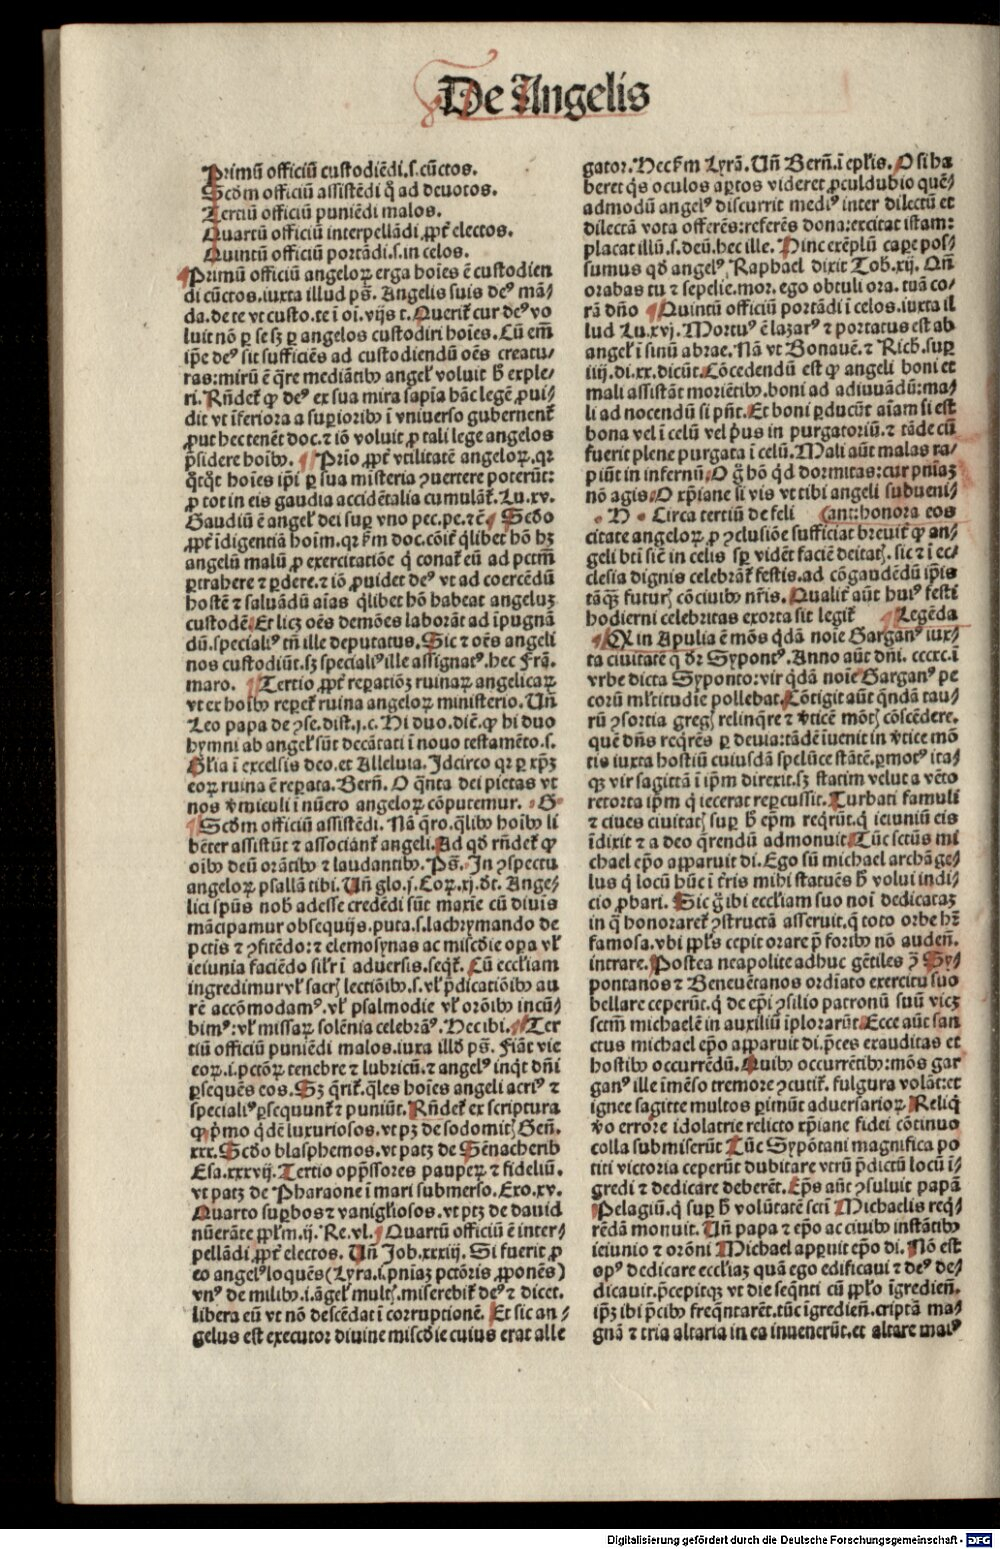 De Angelis
Primū officiū custodiēdi.s.cūctos.
Scd̄m officiū assistēdi q̄ ad deuotos.
Tertiū officiū puniēdi malos.
Quartū officiū interpellādi ꝓpt̄ electos.
Quintū officiū portādi.s.in celos.
¶ Primū officiū angeloꝝ erga hoīes ē custodien
di cūctos.iuxta illud ps̄. Angelis suis deꝰ mā⸗
da.de te vt custo.te ī oī.vijs t. Querit̄ cur deꝰ vo
luit nō ꝑ se sꝫ ꝑ angelos custodiri hoīes. Cū em̄
ip̄e deꝰ sit sufficiēs ad custodiendū oēs creatu⸗
ras:mirū ē q̄re mediātibꝰ angel̄ voluit h̄ exple⸗
ri. Rn̄det̄ ꝙ deꝰ ex sua mira sapīa hāc legē ꝓui⸗
dit vt īferiora a suꝑioribꝰ ī vniuerso gubernent̄
ꝓut hec tenēt doc.⁊ iō voluit ꝓ tali lege angelos
p̄sidere hoībꝰ. ¶ Prīo ꝓpt̄ vtilitatē angeloꝝ.qꝛ
q̄tq̄t hoīes ip̄i ꝑ sua misteria ꝯuertere poterūt:
ꝓ tot in eis gaudia accidētalia cumulāt̄. Lu.xv.
Gaudiū ē angel̄ dei suꝑ vno pec.pe.⁊c̄ ¶ Scd̄o
ꝓpt̄ īdigentiā hoīm.qꝛ ẜm doc.cōit̄ q̄libet hō hꝫ
angelū malū ꝓ exercitatiōe q̄ conat̄ eū ad pctm̄
ꝑtrahere ⁊ ꝑdere.⁊ iō ꝓuidet deꝰ vt ad coercēdū
hostē ⁊ saluādū aīas q̄libet hō habeat angelū
custodē. Et licꝫ oēs demōes laborāt ad īpugnā
dū.specialiꝰ tn̄ ille deputatus. Sic ⁊ oēs angeli
nos custodiūt.sꝫ specialiꝰ ille assignatꝰ.hec Frā.
maro. ¶ Tertio ꝓpt̄ reꝑatiōꝫ ruinaꝝ angelicaꝝ
vt ex hoībꝰ reꝑet̄ ruina angeloꝝ ministerio. Vn̄
Leo papa de ꝯse.dist.j.c. Hi duo.diē.ꝙ hi duo
hymni ab angel̄ sūt decātati ī nouo testamēto.s.
Gl̄ia ī excelsis deo.et Alleluia. Idcirco qꝛ ꝑ xp̄ꝫ
eoꝝ ruina ē reꝑata. Bern̄. O q̄nta dei pietas vt
nos v̄miculi ī nūero angeloꝝ cōputemur. • G •
¶ Scd̄m officiū assistēdi. Nā q̄ro.q̄libꝰ hoībꝰ li
bēter assistūt ⁊ associant̄ angeli. Ad qd̄ rn̄det̄ ꝙ
oībꝰ deū orātibꝰ ⁊ laudantibꝰ. Ps̄. In ꝯspectu
angeloꝝ psallā tibi. Vn̄ glo.j. Coꝝ.xj.dr̄. Ange⸗
lici spūs nob̄ adesse credēdi sūt maxīe cū diuis
mācipamur obsequijs.puta.s.lachrymando de
pctīs ⁊ ꝯfitēdo:⁊ elemosynas ac miscd̄ie oꝑa vl̄
ieiunia faciēdo sil̄r ī aduersis.seqt̄. Cū eccl̄iam
ingredimur vl̄ sacꝛ̄ lectiōibꝰ.s.vl̄ p̄dicatiōibꝰ au
rē accōmodamꝰ.vl̄ psalmodie vl̄ orōibꝰ incū⸗
bimꝰ:vl̄ missaꝝ solēnia celebrāꝰ. Hec ibi. ¶ Ter
tiū officiū puniēdi malos.iuxa illd̄ ps̄. Fiāt vie
eoꝝ.i.pctōꝝ tenebre ⁊ lubricū.⁊ angelꝰ inq̄t dn̄i
ꝑsequēs eos. Sꝫ q̄rit̄.q̄les hoīes angeli acriꝰ ⁊
specialiꝰ ꝑsequunt̄ ⁊ puniūt. Rn̄det̄ ex scriptura
ꝙ p̄mo q̄dē luxuriosos.vt pꝫ de sodomit̄ Gen̄.
xxx. Scd̄o blasphemos.vt patꝫ de Senacherib
Esa.xxxvij. Tertio opp̄ssores pauꝑeꝝ ⁊ fideliū.
vt patꝫ de Pharaone ī mari submerso. Exo.xv.
Quarto suꝑbos ⁊ vanigliosos.vt ptꝫ de dauid
nūerāte ppl̄m.ij. Re.vl. ¶ Quartū officiū ē inter⸗
pellādi ꝓpt̄ electos. Vn̄ Job.xxxiij. Si fuerit ꝓ
eo angelꝰ loquēs(Lyra.i.pnīaꝫ pctōris ꝓponēs)
vnꝰ de milibꝰ.i.āgel̄ mult̄.miserebit̄ deꝰ ⁊ dicet.
libera eū vt nō descēdat ī corruptionē. Et sic an⸗
gelus est executor diuine miscd̄ie cuius erat alle
gator. Hec ẜm Lyrā. Vn̄ Bern̄.ī epl̄is. O si ha
beret q̄s oculos aꝑtos videret ꝓculdubio quē⸗
admodū angelꝰ discurrit mediꝰ inter dilectū et
dilectā vota offerēs:referēs dona:excitat istam:
placat illū.s.deū.hec ille. Hinc exēplū caꝑe pos⸗
sumus qd̄ angelꝰ Raphael dixit Tob.xij. Qn̄
orabas tu ⁊ sepelie.mor.ego obtuli ora.tuā co⸗
rā dn̄o ¶ Quintū officiū portādi ī celos.iuxta il
lud Lu.xvj. Mortuꝰ ē lazarꝰ ⁊ portatus est ab
angel̄ ī sinū abrae. Nā vt Bonauē.⁊ Rich̄.suꝑ
iiij.di.xx.dicūt. Cōcedendū est ꝙ angeli boni et
mali assistāt moriētibꝰ.boni ad adiuuādū:ma⸗
li ad nocendū si pn̄t. Et boni ꝑducūt aīam si est
bona vel ī celū vel p̄us in purgatoriū.⁊ tāde cū
fuerit plene purgata ī celū. Mali aūt malas ra⸗
piūt in infernū. O g̊ hō qd̄ dormitas:cur pnīaꝫ
nō agis. O xp̄iane si vis vt tibi angeli subueni⸗
• H • Circa tertiū de feli (ant:honora eos
citate angeloꝝ ꝓ ꝯclusiōe sufficiat breuit̄ ꝙ an⸗
geli bt̄i sic̄ in celis sꝑ vidēt faciē deitat̄.sic ⁊ ī ec⸗
clesia dignis celebrāt̄ festis.ad cōgaudēdū ip̄is
tāqꝫ futur̄ cōciuibꝰ nr̄is. Qualit̄ aūt huiꝰ festi
hodierni celebritas exorta sit legit̄ ¶ Legēda
¶ EX in Apulia ē mōs q̄dā noīe Garganꝰ iux⸗
ta ciuitatē q̄ dr̄ Sypontꝰ. Anno aūt dn̄i. cccxc.ī
vrbe dicta Syponto:vir q̄dā noīe Garganꝰ pe
corū ml̄titudīe pollebat. Cōtigit aūt q̄ndā tau⸗
rū ꝯsortia greḡ relinq̄re ⁊ v̄ticē mōt̄ cōscēdere.
quē dn̄s reqrēs ꝑ deuia:tādē īuenit in v̄tice mō
tis iuxta hostiū cuiusdā spelūce stātē.ꝑmotꝰ ita⸗
qꝫ vir sagittā ī ip̄m direxit.sꝫ statim velut a vēto
retorta ip̄m q̄ iecerat reꝑcussit. Turbati famuli
⁊ ciues ciuitat̄ suꝑ h̄ ep̄m reqrūt.q̄ ieiuniū eis
īdixit ⁊ a deo q̄rendū admonuit. Tūc sctūs mi
chael ep̄o apparuit di. Ego sū michael archāge⸗
lus q̄ locū hūc ī t̄ris mihi statuēs h̄ volui indi⸗
cio ꝓbari. Sic g̊ ibi eccl̄iam suo noī dedicataꝫ
in q̄ honoraret̄ ꝯstructā asseruit.q̄ toto orbe hr̄
famosa.vbi ppl̄s cepit orare p̄ foribꝰ nō auden̄.
intrare. Postea neapolite adhuc gētiles ꝯ̄ Sy⸗
pontanos ⁊ Beneuētanos ordīato exercitu suo
bellare ceperūt.q̄ de ep̄i ꝯsilio patronū suū vicꝫ
sctm̄ michaelē in auxiliū īplorarūt. Ecce aūt san
ctus michael ep̄o apparuit di.p̄ces exauditas et
hostibꝰ occurrēdū. Quibꝰ occurrētibꝰ:mōs gar
ganꝰ ille īmēso tremore ꝯcutit̄. fulgura volāt:et
ignee sagitte multos ꝑimūt aduersarioꝝ. Reliq̄
v̄o errore idolatrie relicto xp̄iane fidei cōtinuo
colla submiserūt Tūc Sypōtani magnifica po
titi victoria ceperūt dubitare vtrū p̄dictū locū ī⸗
gredi ⁊ dedicare deberēt. Ep̄s aūt ꝯsuluit papā
Pelagiū.q̄ suꝑ h̄ volūtatē sctī Michaelis req̄⸗
rēdā monuit. Vn̄ papa ⁊ ep̄o ac ciuibꝰ instātibꝰ
ieiunio ⁊ orōni Michael apꝑuit ep̄o di. Nō est
opꝰ dedicare eccl̄iaꝫ quā ego edificaui ⁊ deꝰ de⸗
dicauit.p̄cepitqꝫ vt die seq̄nti cū ppl̄o īgredien̄.
ip̄ꝫ ibi p̄cibꝰ freq̄ntarēt.tūc īgredien̄.criptā ma⸗
gnā ⁊ tria altaria in ea inuenerūt.et altare maiꝰ
Digitalisierung gefördert durch die Deutsche Forschungsgemeinschaft - DFG